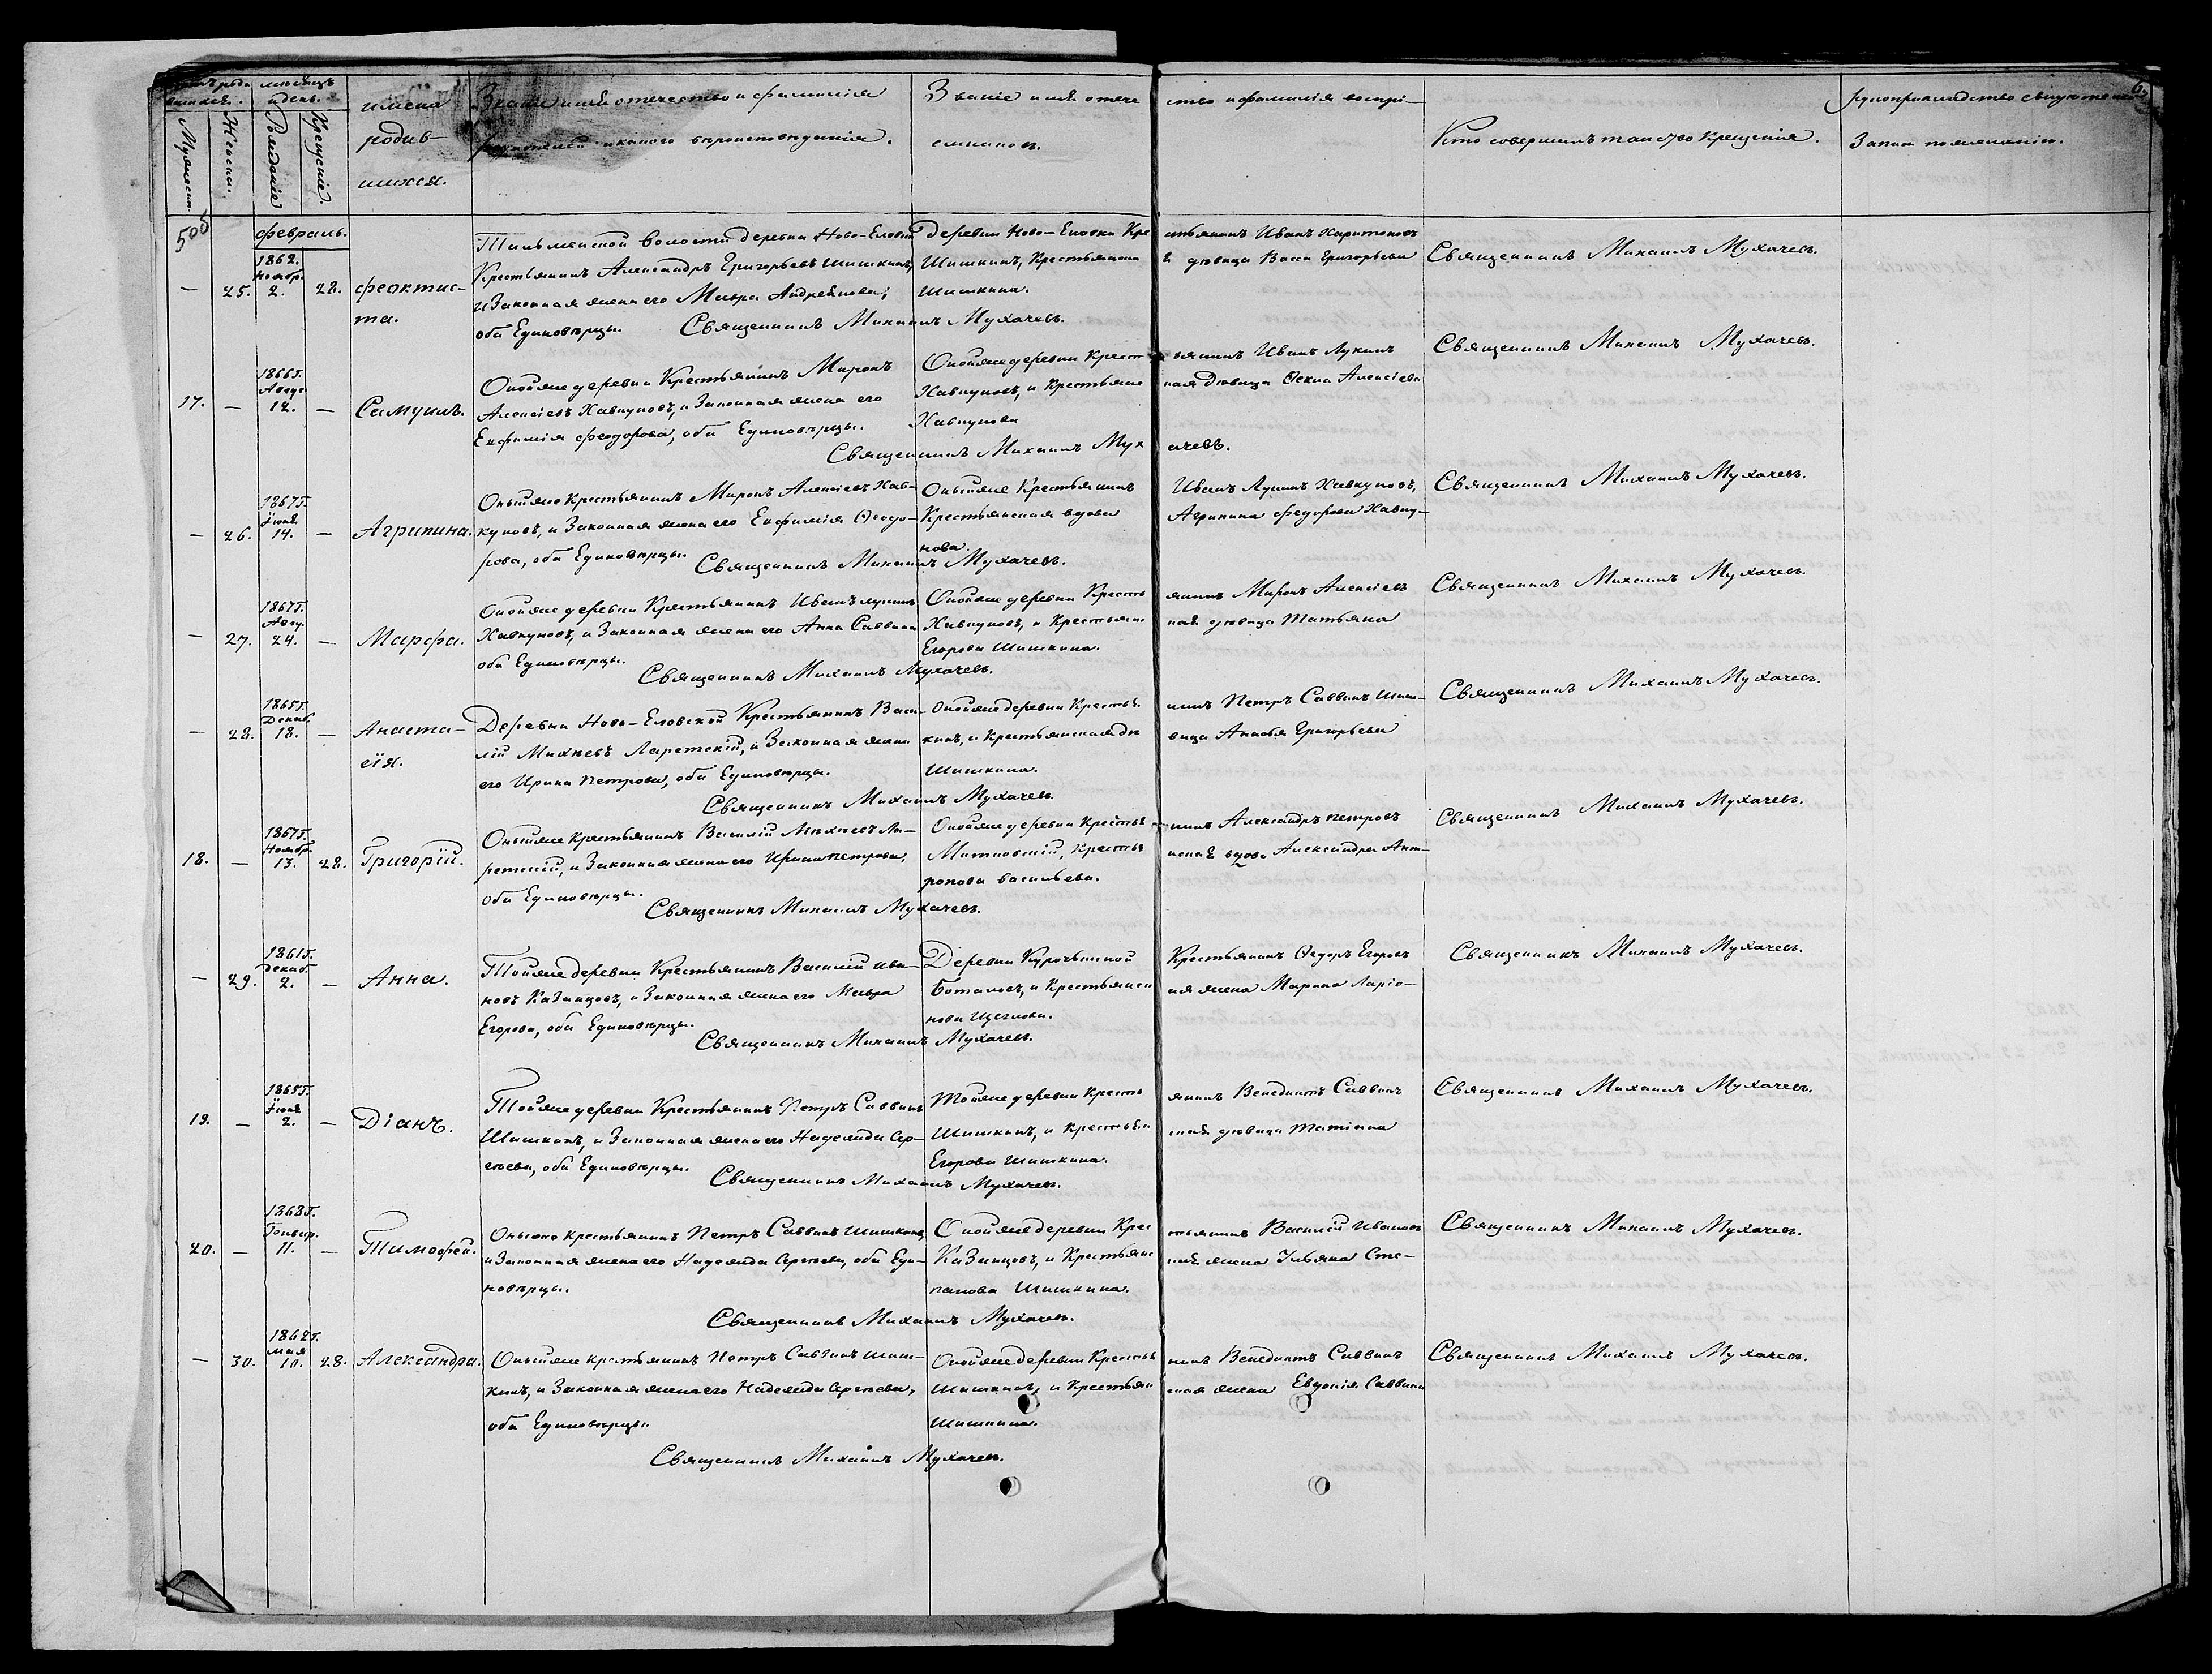 мѣсяцъ
и день.
Мужеска.
Женска.
Рожденіе
Крещеніе.
имена
родив-
шихся.
Званіе имя отечество и фамилія
и какого вѣроисповѣданія.
Званіе имя отече
ство и фамилія воспрі-
емниковъ.
Кто совершилъ таинство крещенія.
Рукоприкладство свидѣтелей
Записи по желанію.
Февраль.
1862.
Ноябр.
— 25. 2. 28. Феоктис-
та.
Тальменской волости деревни Ново-Еловки
Крестьянинъ Александръ Григорьевъ Шишкинъ,
и Законная жена его Мавра Андреянова,
оба Единовѣрцы. Священникъ Михаилъ Мухачевъ.
Деревни Ново-Еловки Кре стьянинъ Иванъ Харитоновъ
Шишкинъ, Крестьянска я дѣвица Васса Григорьева
Шишкина.
Священникъ Михаилъ Мухачевъ.
1866г.
Авгус
17. — 12. — Самуилъ.
Онойже деревни Крестьянинъ Миронъ
Алексіевъ Хавкуновъ, и Законная жена его
Евфимія Феодорова, оба Единовѣрцы.
Священникъ Михаилъ Мух ачевъ.
Онойже деревни Крест ьянинъ Иванъ Лукинъ
Хавкуновъ, и Крестьянс кая дѣвица Ѳекла Алексіева
Хавкунова
Священникъ Михаилъ Мухачевъ.
1867г.
Іюня
— 26. 14. — Агрипина.
Онытже Крестьянинъ Миронъ Алексіевъ Хав-
куновъ, и Законная жена его Евфимія Ѳеодо-
рова, оба Единовѣрцы. Священникъ Михаилъ Мухачевъ.
Онытже Крестьянинъ Иванъ Лукинъ Хавкуновъ,
Крестьянская вдова Агрипина Федорова Хавку-
нова.
Священникъ Михаилъ Мухачевъ.
1867г.
Авгу.
— 27. 24. — Марфа.
Онойже деревни Крестьянинъ Иванъ Лукинъ
Хавкуновъ, и Законная жена его Анна Саввина
оба Единовѣрцы.
Священникъ Михаилъ Мухачевъ.
Онойже деревни Кресть янинъ Миронъ Алексіевъ
Хавкуновъ, и Крестьянс кая дѣвица Татьяна
Егорова Шишкина.
Священникъ Михаилъ Мухачевъ.
1865г.
Декаб.
— 28. 18. — Анаста-
сія.
Деревни Ново-Еловской Крестьянинъ Васи-
лій Михѣевъ Ларетскій, и Законная жена
его Ирина Петрова, оба Единовѣрцы.
Священникъ Михаилъ Мухачевъ.
Онойже деревни Крестья нинъ Петръ Саввинъ Шиш-
кинъ, и Крестьянская дѣ вица Анисья Григорьева
Шишкина.
Священникъ Михаилъ Мухачевъ.
1867г.
Ноябр.
18. — 13. 28. Григорій.
Онытже Крестьянинъ Василій Михѣевъ Ла-
ретскій, и Законная жена его Ирина Петрова,
оба Единовѣрцы.
Священникъ Михаилъ Мухачевъ.
Онойже деревни Крестья нинъ Александръ Петровъ
Митновскій, Крестья нская вдова Александра Ант-
ропова Васильева.
Священникъ Михаилъ Мухачевъ.
1861г.
Декаб.
— 29. 2. — Анна.
Тойже деревни Крестьянинъ Василій Ива-
новъ Казанцовъ, и Законная жена его Мавра
Егорова, оба Единовѣрцы.
Священникъ Михаилъ Мухачевъ.
Деревни Курочкиной Крестьянинъ Ѳедоръ Егоровъ
Боталовъ, и Крестьянск ая жена Марина Ларіо-
нова Щеглова.
Священникъ Михаилъ Мухачевъ.
1865г.
Іюня
19. — 2. — Діанъ.
Тойже деревни Крестьянинъ Петръ Саввинъ
Шишкинъ, и Законная жена его Надежда Сер-
гѣева, оба Единовѣрцы.
Священникъ Михаилъ Мухачевъ.
Тойже деревни Кресть янинъ Венедиктъ Саввинъ
Шишкинъ, и Крестьян ская дѣвица Татіана
Егорова Шишкина.
Священникъ Михаилъ Мухачевъ.
1868г.
Генвар.
20. — 11. — Тимофей.
Онытже Крестьянинъ Петръ Саввинъ Шишкинъ,
и Законная жена его Надежда Сергѣева, оба Еди-
новѣрцы.
Священникъ Михаилъ Мухачевъ.
Онойже деревни Крес тьянинъ Василій Ивановъ
Казанцовъ, и Крестьянс кая жена Ульяна Сте-
панова Шишкина.
Священникъ Михаилъ Мухачевъ.
1862г.
Мая
— 30. 10. 28. Александра.
Онытже крестьянинъ Петръ Саввинъ Шиш-
кинъ, и Законная жена его Надежда Сергѣева,
оба Единовѣрцы.
Священникъ Михаилъ Мухачевъ.
Онойже деревни Крестья нинъ Венедиктъ Саввинъ
Шишкинъ, и Крестьян ская жена Евдокія Саввина
Шишкина.
Священникъ Михаилъ Мухачевъ.